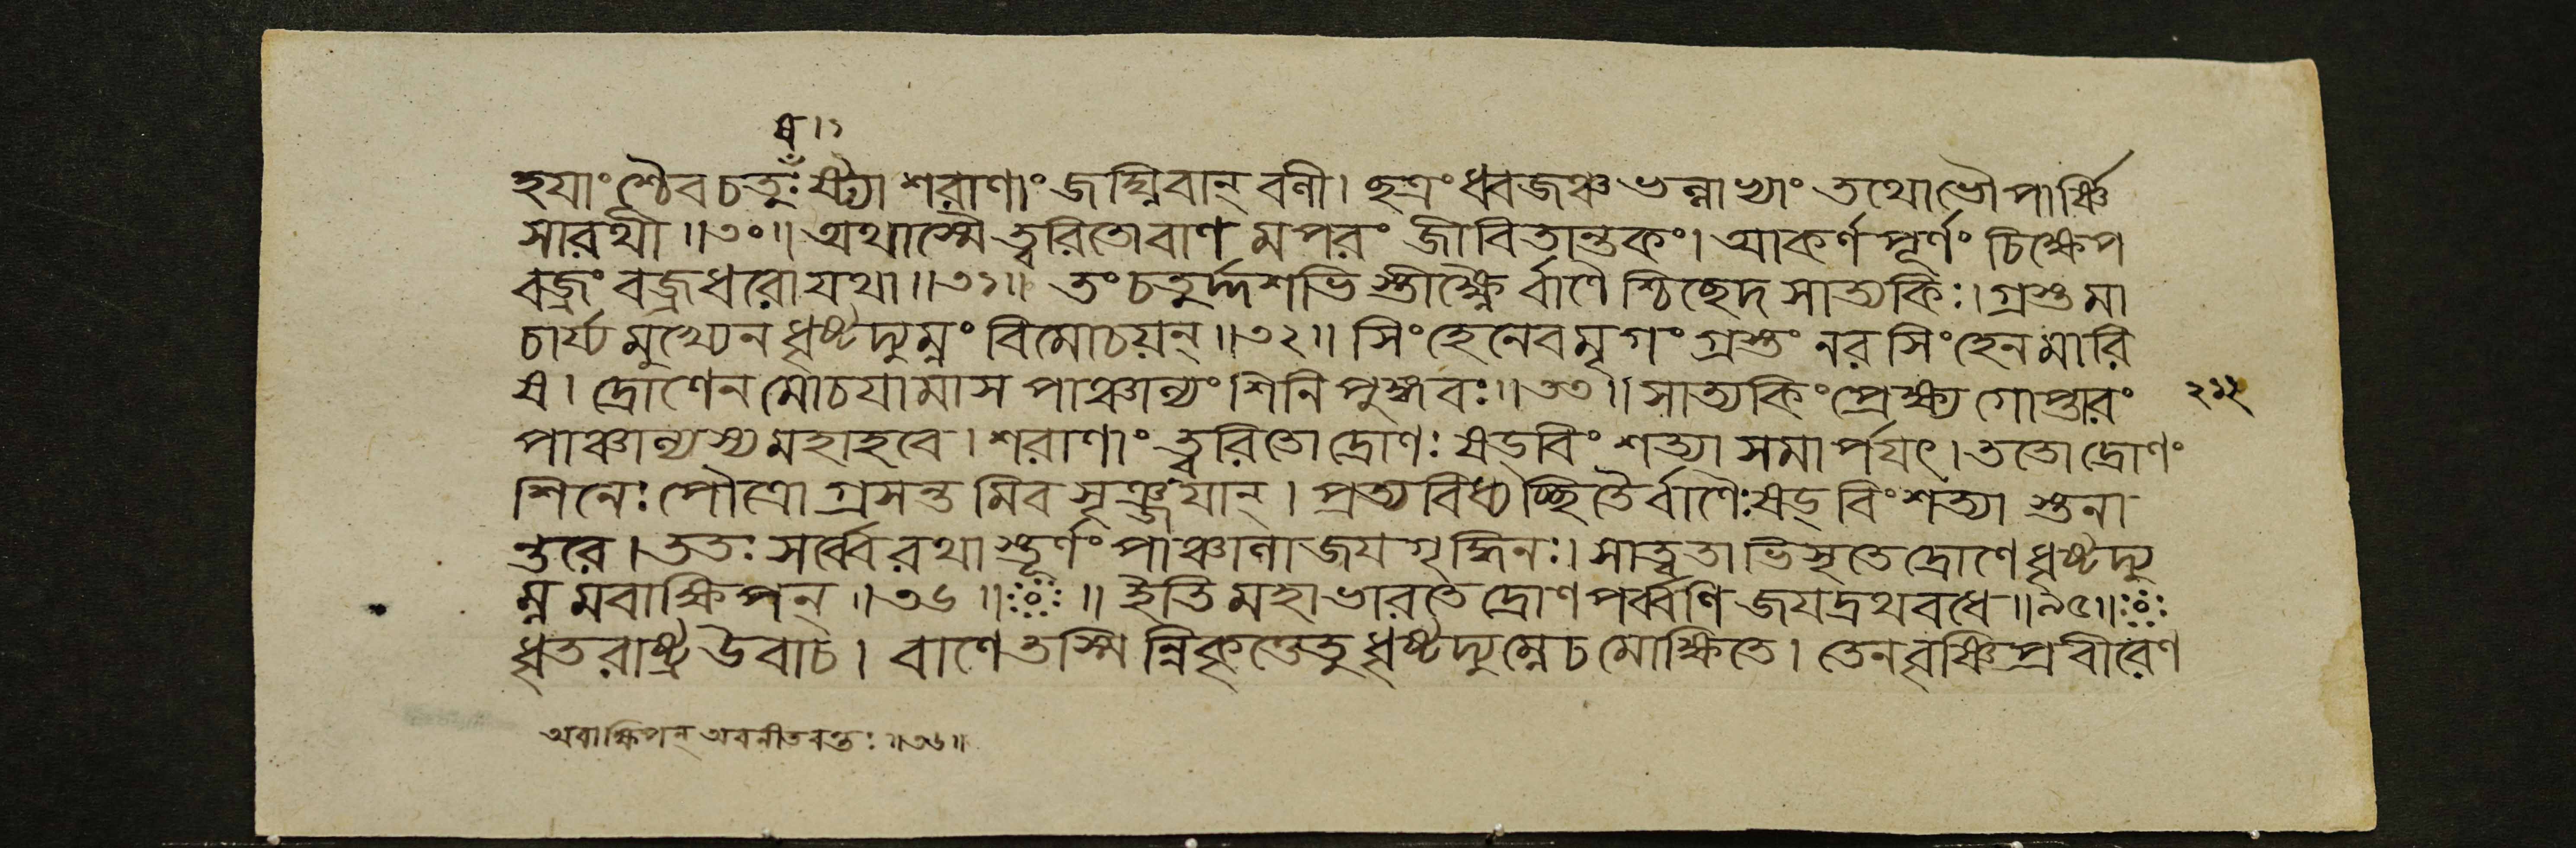 ষ।১
হযাংশ্চৈব চতুঃষষ্ট্যা শরাণাং জঘ্নিবান্ বলী। ছত্রং ধ্বজঞ্চ ভল্লাভ্যাং তথোভৌ পার্ষ্ণি
সারথী॥৩০॥ অথাস্মৈ ত্বরিতো বাণ মপরং জীবিতান্তকং। আকর্ণপূর্ণং চিক্ষেপ
বজ্রং বজ্রধরো যথা॥৩১॥ তং চতুর্দ্দশভি স্তীক্ষ্ণৈ র্বাণৈ শ্চিছেদ সাত্যকিঃ। গ্রস্তমা
চার্য্য মুখ্যেন ধৃষ্টদ্যুম্নং বিমোচয়ন্॥৩২॥ সিংহেনেব মৃগং গ্রস্তং নরসিংহেন মারি
ষ। দ্রোণেন মোচযামাস পাঞ্চাল্যং শিনিপুঙ্গবঃ॥৩৩॥ সাত্যকিং প্রেক্ষ্য গোপ্তারং
পাঞ্চাল্যস্য মহাহবে। শরাণাং ত্বরিতো দ্রোণঃ ষড্বিংশত্যা সমার্পযৎ। ততো দ্রোণং
শিনেঃ পৌত্রো গ্রসন্তমিব সৃঞ্জযান্। প্রত্যবিধ্যচ্ছিতৈর্বাণৈঃ ষড্বিংশত্যা স্তনা
ন্তরে। ততঃ সর্ব্বে রথা স্তূর্ণং পাঞ্চালা জযগৃদ্ধিনঃ। সাত্বতাভিসৃতে দ্রোণে ধৃষ্টদ্যু
ম্ন মবাক্ষিপন্॥৩৬॥ ॥ ইতি মহাভারতে দ্রোণপর্ব্বণি জযদ্রথবধে॥৯৫॥
ধৃতরাষ্ট্র উবাচ। বাণে তস্মিন্নিকৃত্তে তু ধৃষ্টদ্যুম্নে চ মোক্ষিতে। তেন বৃষ্ণিপ্রবীরেণ
অবাক্ষিপন্ অবনীতবন্তঃ॥৩৬॥